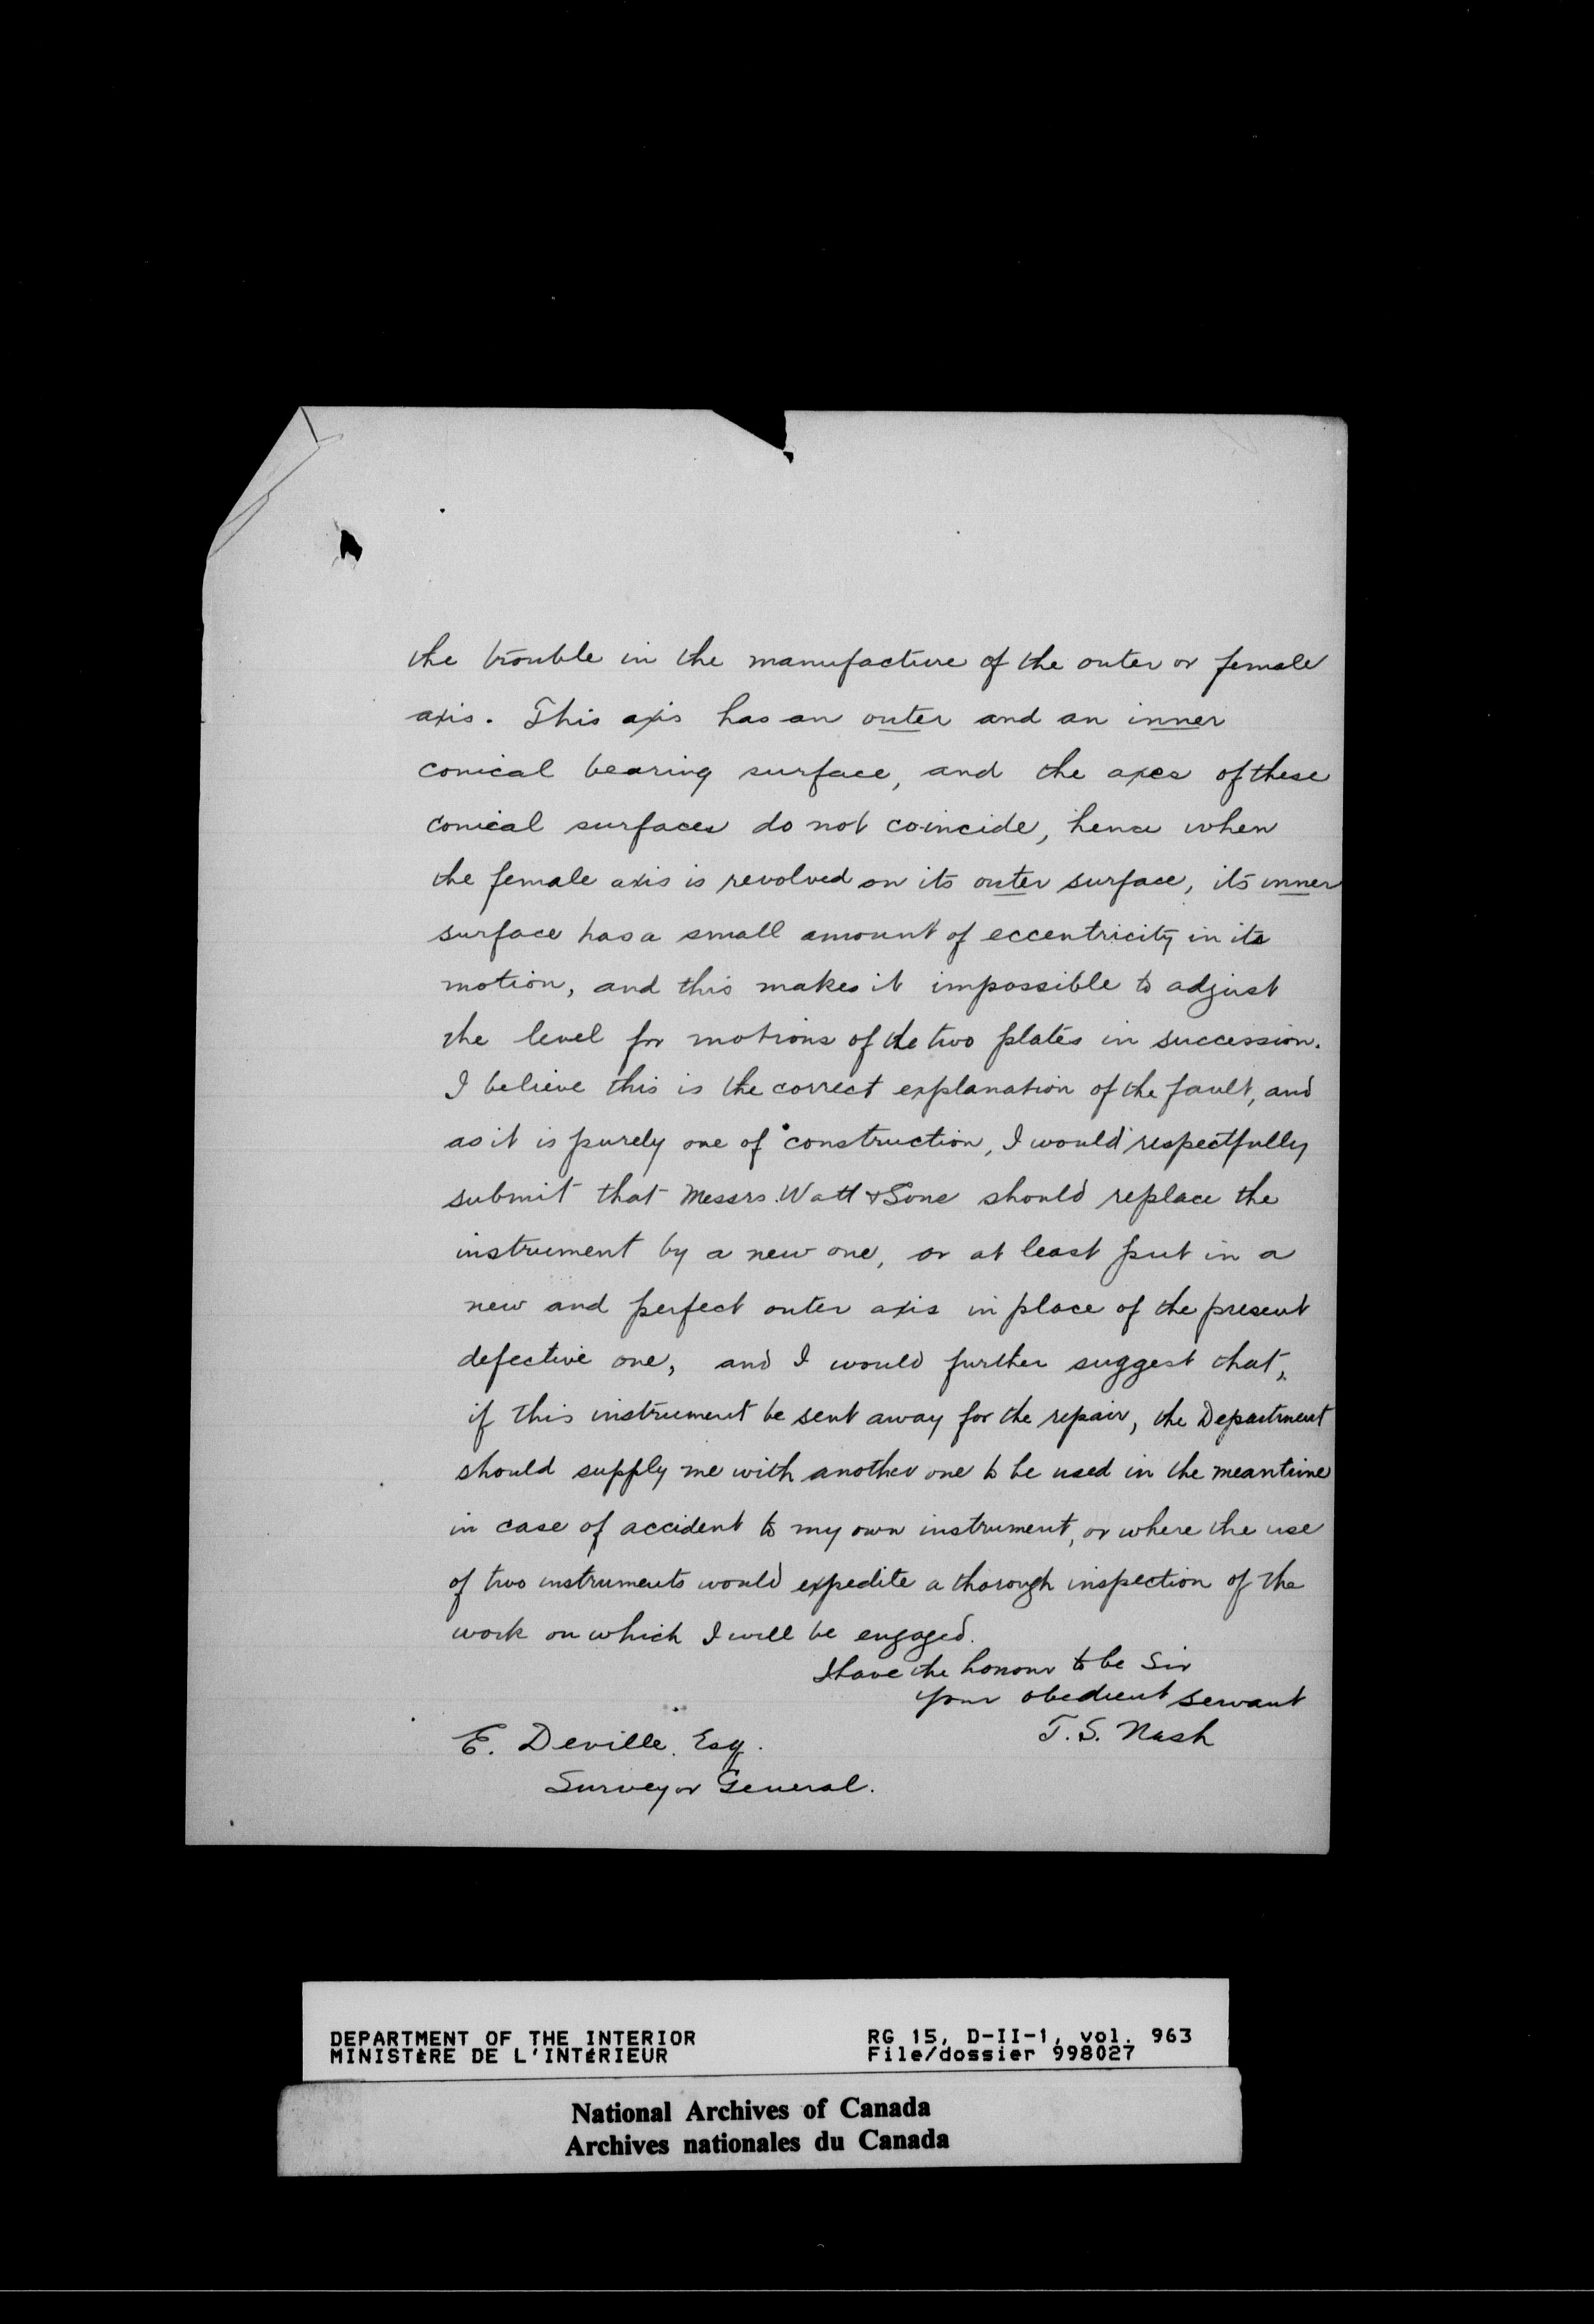 the trouble in the manufacture of the outer or female
axis. This axis has an outer and an inner
conical bearing surface, and the axes of these
conical surfaces do not coincide, hence when
the female axis is revolved on its outer surface, its inner
surface has a small amount of eccentricity in its
motion, and this makes it impossible to adjust
the level for motions of the two plates in succession.
I believe this is the correct explanation of the fault, and
as it is purely one of construction, I would respectfully
submit that Messrs. Watt & Sons should replace the
instrument by a new one, or at least put in a
new and perfect outer axis in place of the present
defective one, and I would further suggest that,
if this instrument be sent away for the repair, the Department
should supply me with another one to be used in the meantime
in case of accident to my own instrument, or where the use
of two instruments would expedite a thorough inspection of the
work on which I will be engaged.
I have the honour to be Sir
your obedient servant
T. S. Nash
E. Deville. Esq.
Surveyor General.
DEPARTMENT OF THE INTERIOR RG 15, D-II-1, vol. 963
MINISTÈRE DE L'INTÉRIEUR File/dossier 998027
National Archives of Canada
Archives nationales du Canada